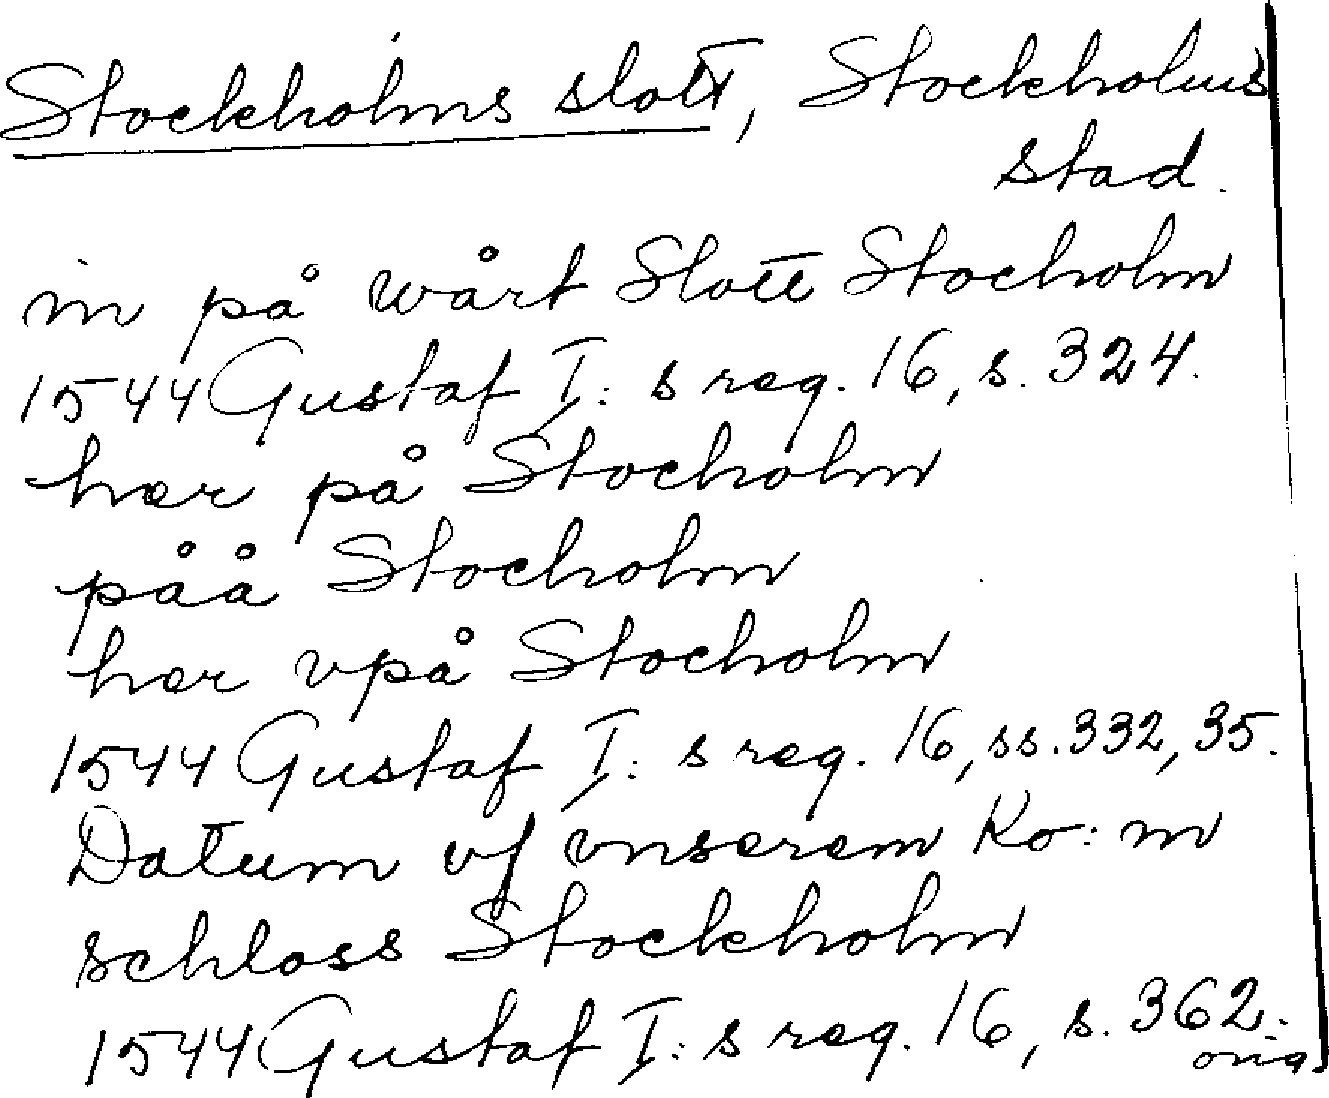 Stockholms slott, Stockholms
stad.
in på wårt Slott Stocholm
1544 Gustaf I:s reg. 16, s. 324.
her på Stocholm
påå Stocholm
her vpå Stocholm
1544 Gustaf I:s reg. 16, ss. 332, 35.
Datum vf vnserem Ko: m
schloss Stockholm
1544 Gustaf I:s reg. 16, s. 362.
orig